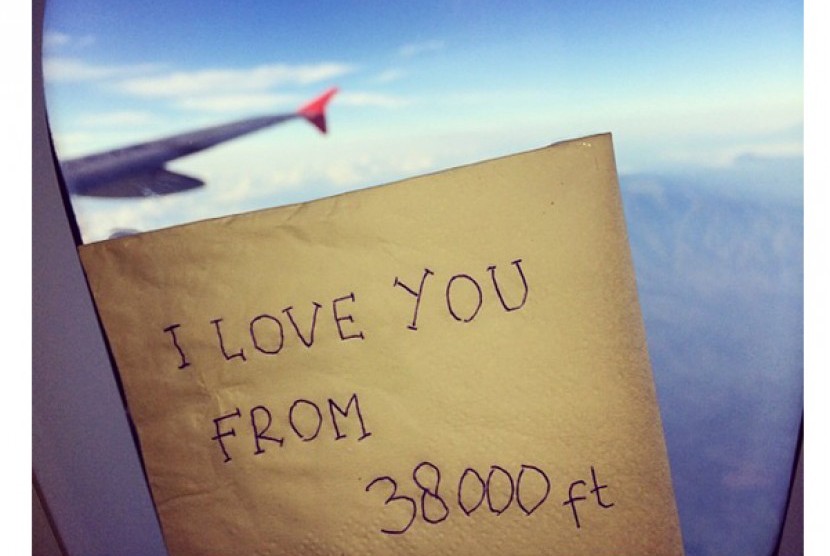 I LOVE YOU
FROM
38000 ft